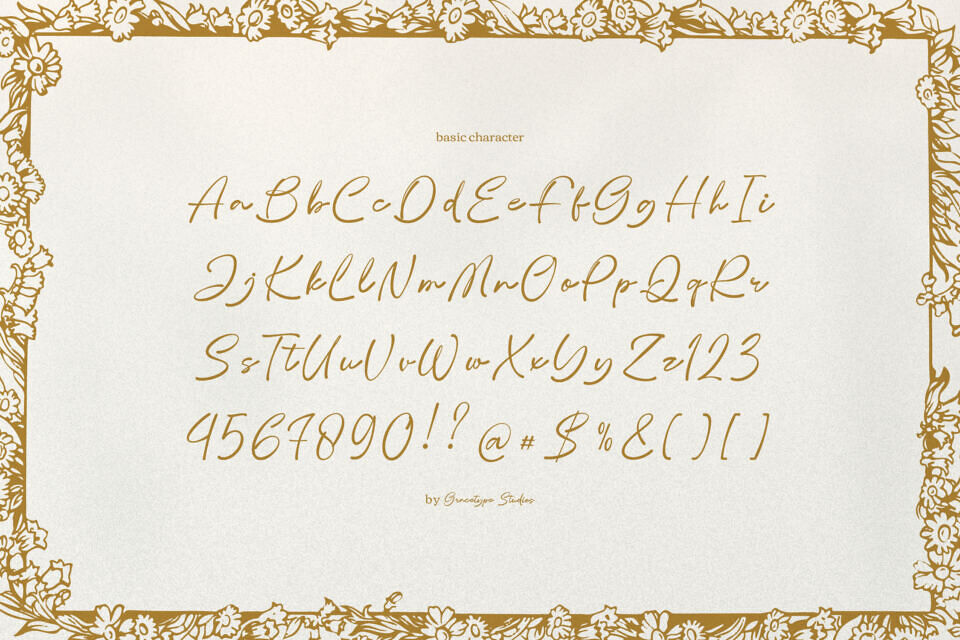 basic character
AaBbCcDdEeFfGgHhIi
JjKkLlNmMnOoPpQqRr
SsTtUuVvWwXxYyZz123
4567890!?@#$%&()[]
by Gracetype Studios